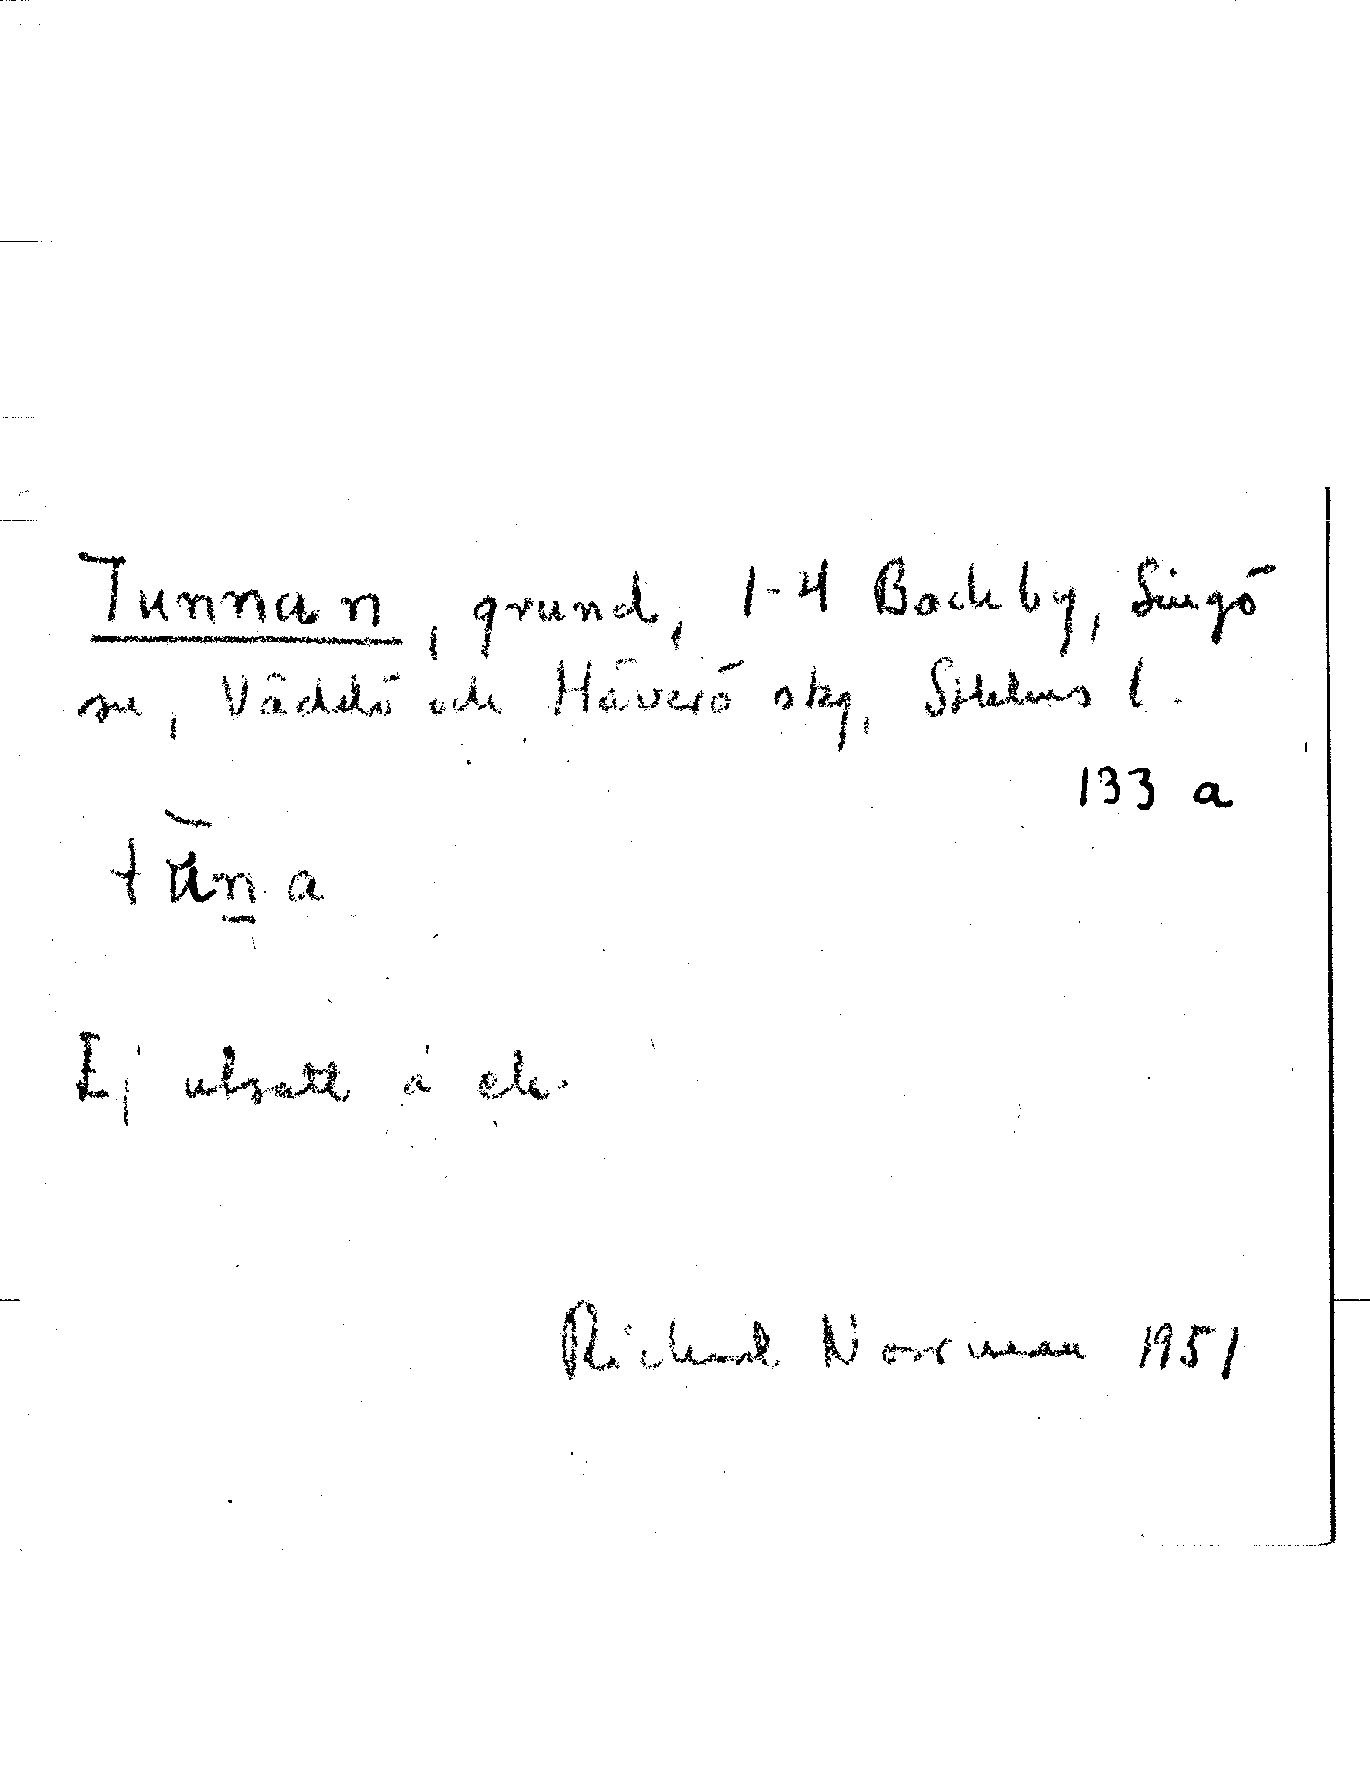 Tunnan, grund, 1-4 Backby, Singö
sn, Väddö och Häverö skg, Sthlms l.
133 a
Ej utsatt å ek.
Richard Norrman 1951